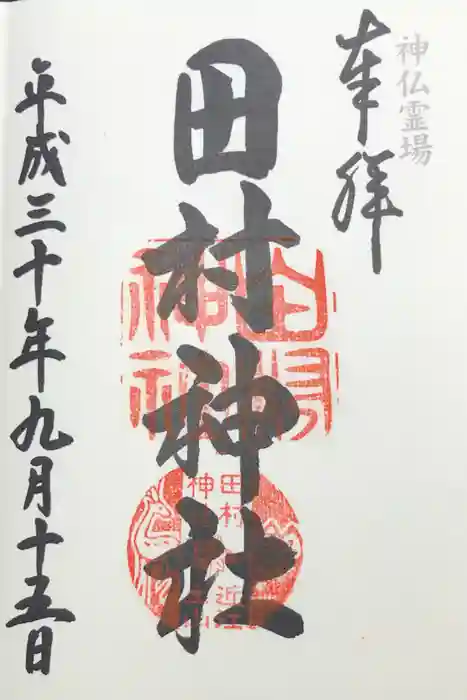 神仏霊場
奉拝
田村神社
平成三十年九月十五日
田村
神社
田村
近江